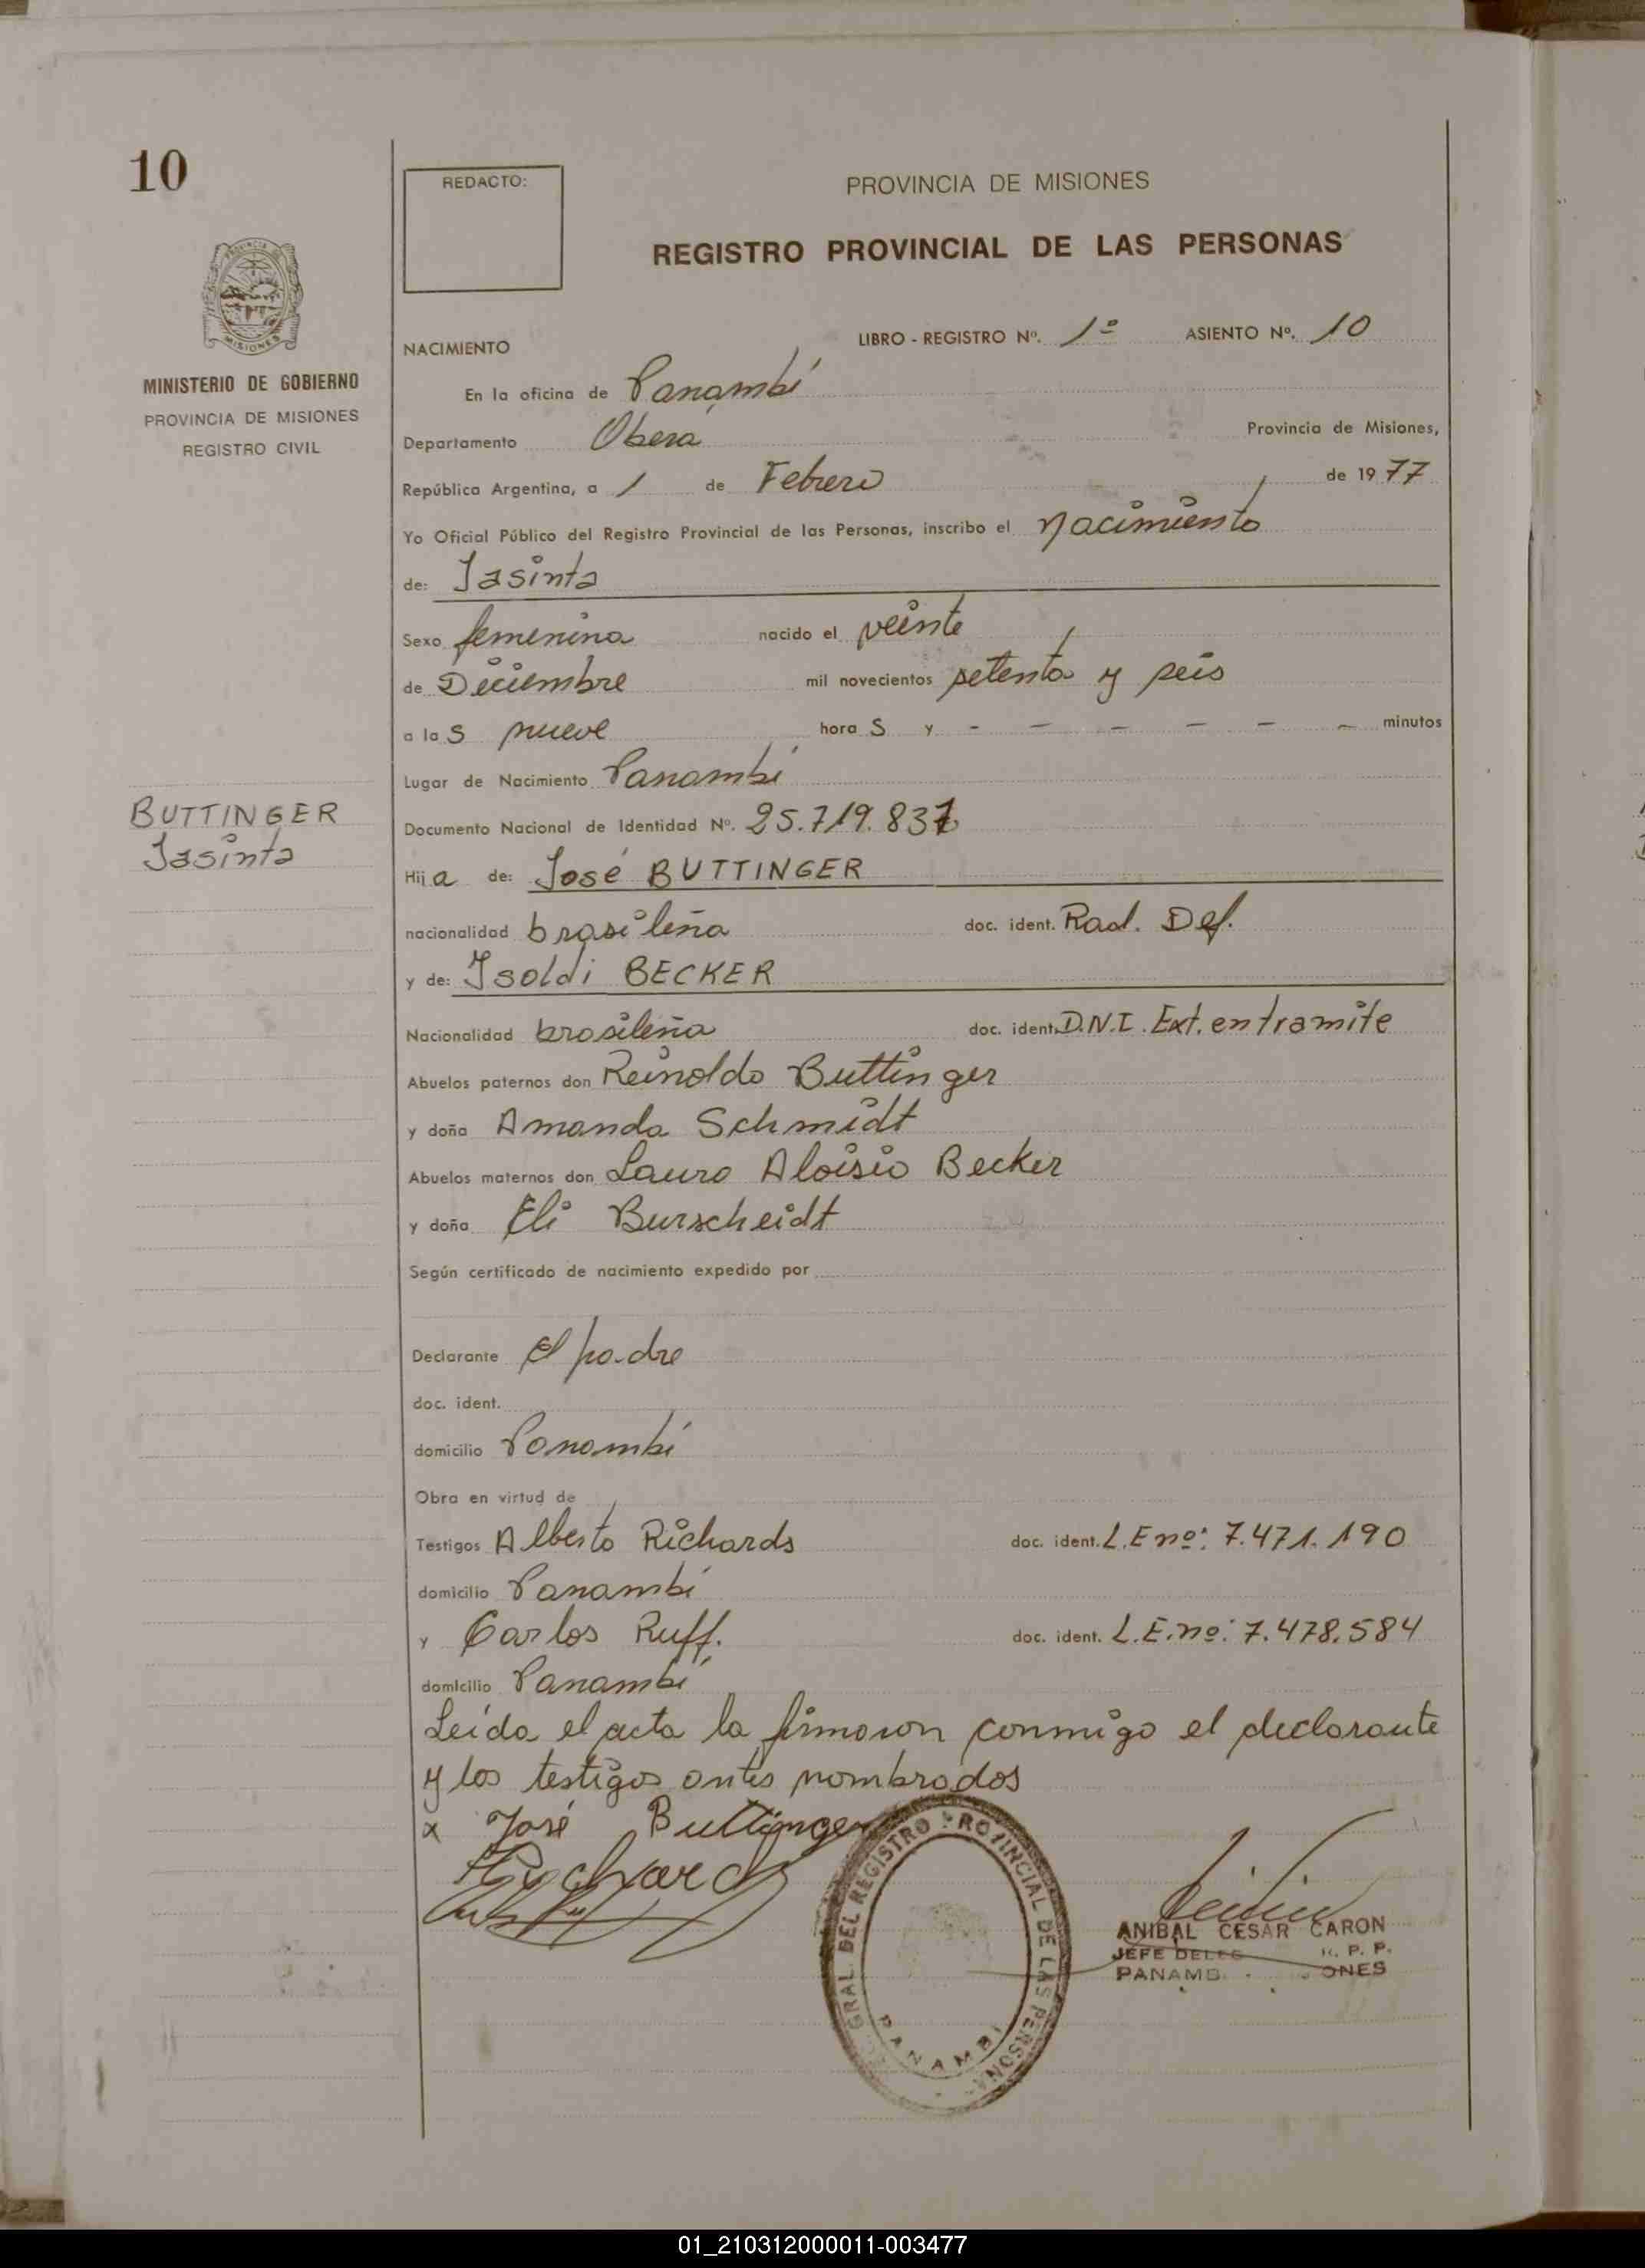 10
REDACTO:
PROVINCIA DE MISIONES
REGISTRO PROVINCIAL DE LAS PERSONAS
PROVINCIA DE
MISIONES
MINISTERIO DE GOBIERNO
PROVINCIA DE MISIONES
REGISTRO CIVIL
NACIMIENTO LIBRO - REGISTRO Nº. 1º ASIENTO Nº. 10
En la oficina de Panambí
Departamento Oberá Provincia de Misiones,
República Argentina, a 1 de Febrero de 1977
Yo Oficial Público del Registro Provincial de las Personas, inscribo el nacimiento
de: Jasinta
Sexo femenina nacido el veinte
de Diciembre mil novecientos setenta y seis
a las nueve horas y - - - - - - minutos
Lugar de Nacimiento Panambí
BUTTINGER
Jasinta
Documento Nacional de Identidad Nº. 25.719.837
Hija de: José BUTTINGER
nacionalidad brasileña doc. ident. Rad. Def.
y de: Isoldi BECKER
Nacionalidad brasileña doc. ident. D.N.I. Ext. en tramite
Abuelos paternos don Reinoldo Buttinger
y doña Amanda Schmidt
Abuelos maternos don Lauro Aloisio Becker
y doña Eli Burscheidt
Según certificado de nacimiento expedido por
Declarante el padre
doc. ident.
domicilio Panambí
Obra en virtud de
Testigos Alberto Richards doc. ident. L.E nº: 7.471.190
domicilio Panambí
y Carlos Ruff. doc. ident. L.E. nº: 7.478.584
domicilio Panambí
Leída el acta la firmaron conmigo el declarante
y los testigos antes nombrados
x José Buttinger
Richards
GRAL. DEL REGISTRO PROVINCIAL DE LAS PERSONAS
PANAMBI
ANIBAL CESAR CARON
JEFE R. P. P.
01_210312000011-003477